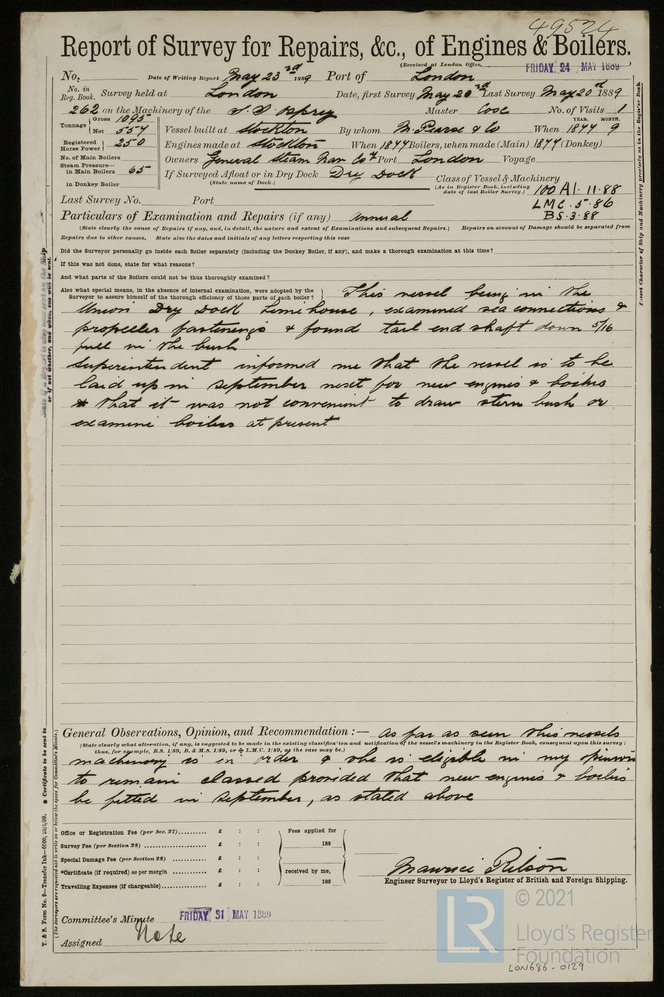 49524
Report of Survey for Repairs, &c., of Engines & Boilers.
(Received at London Office, FRIDAY 24 MAY 1889
No. Date of Writing Report May 23rd 1889 Port of London
No. in Reg. Book. Survey held at London Date, first Survey May 20th Last Survey May 20th 1889
262 on the Machinery of the S.S. Osprey Master Cox No. of Visits 1
Tonnage Gross 1095 Net 557 Vessel built at Stockton By whom M. Pearse & Co When 1877 9 YEAR. MONTH.
Registered Horse Power 250 Engines made at Stockton When 1877 Boilers, when made (Main) 1877 (Donkey)
No. of Main Boilers Owners General Steam Nav. Coy Port London Voyage
Steam Pressure— in Main Boilers 65 If Surveyed Afloat or in Dry Dock Dry Dock
(State name of Dock.)
in Donkey Boiler
Class of Vessel & Machinery
(As in Register Book, including date of last Boiler Survey.) 100 A1. 11.88
LMC. 5.86
BS. 3.88
Last Survey No. Port
Particulars of Examination and Repairs (if any) Annual
(State clearly the cause of Repairs if any, and, in detail, the nature and extent of Examinations and subsequent Repairs.) Repairs on account of Damage should be separated from
Repairs due to other causes, State also the dates and initials of any letters respecting this case
Did the Surveyor personally go inside each Boiler separately (including the Donkey Boiler, if any), and make a thorough examination at this time?
If this was not done, state for what reasons?
And what parts of the Boilers could not be thus thoroughly examined?
Also what special means, in the absence of internal examination, were adopted by the
Surveyor to assure himself of the thorough efficiency of those parts of each boiler?
This vessel being in the
Union Dry Dock Limehouse, examined sea connections &
propeller fastenings & found tail end shaft down 5/16
full in the bush
Superintendent informed me that the vessel is to be
laid up in September next for new engines & boilers
& that it was not convenient to draw stern bush or
examine boilers at present
General Observations, Opinion, and Recommendation :— As far as seen this vessels
(State clearly what alteration, if any, is suggested to be made in the existing classification and notification of the vessel's machinery in the Register Book, consequent upon this survey:
thus, for example, B.S. 1/89, B. & M.S. 1/89, or L.M.C. 1/89, as the case may be.)
machinery is in order & she is eligible in my opinion
to remain classed provided that new engines & boilers
be fitted in September, as stated above
Office or Registration Fee (per Sec. 27) £ : :
Survey Fee (per Section 28) £ : :
Special Damage Fee (per Section 28) £ : :
*Certificate (if required) as per margin £ : :
Travelling Expenses (if chargeable) £ : :
Fees applied for
188
received by me,
188
Maurice Rilson
Engineer Surveyor to Lloyd's Register of British and Foreign Shipping.
Committee's Minute FRIDAY 31 MAY 1889
Note
Assigned
LR
© 2021
Lloyd's Register
Foundation
LON686-0129